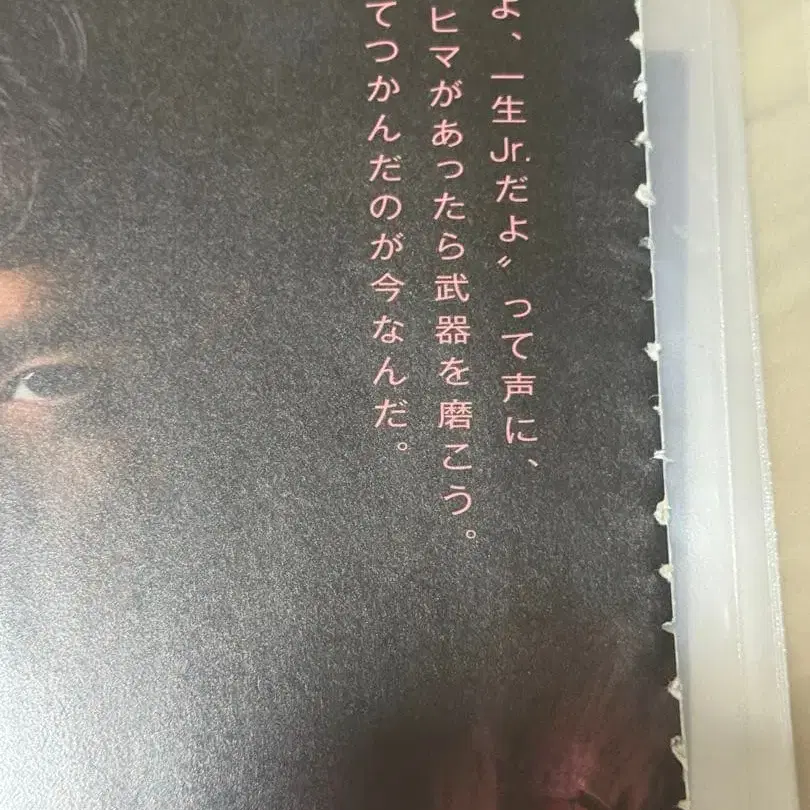 よ、一生Jr.だよ〟って声に、
ヒマがあったら武器を磨こう。
てつかんだのが今なんだ。